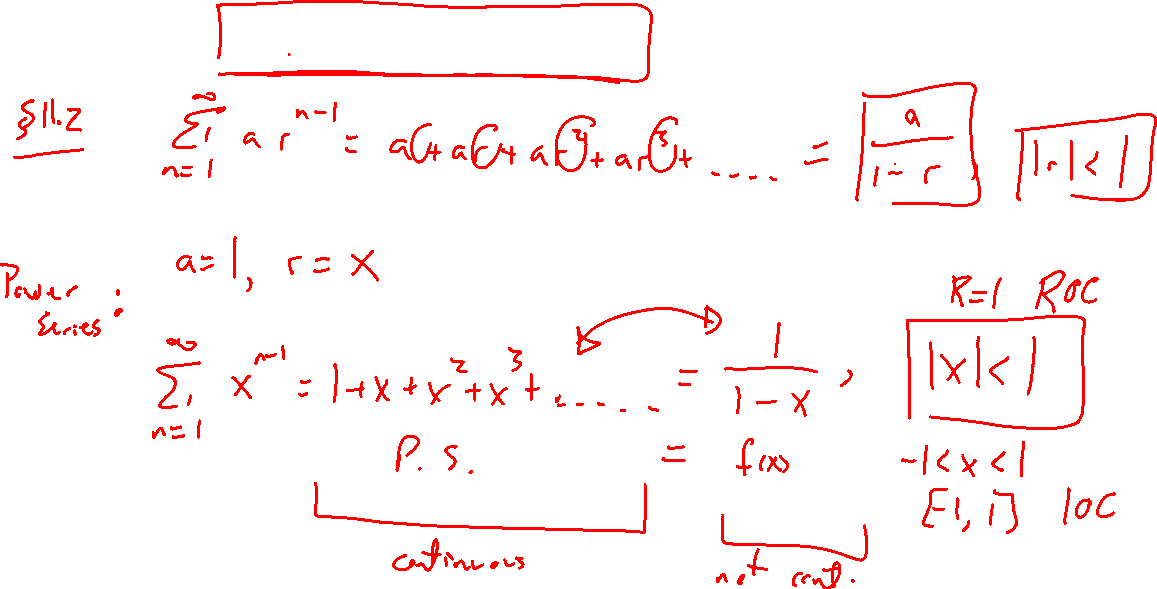 §11.2 ∞ Σ n=1 a r^(n-1) = a + ar + ar² + ar³ + .... = a/(1-r) |r| < 1
a = 1, r = x
Power Series:
R=1 ROC
∞ Σ n=1 x^(n-1) = 1 + x + x² + x³ + ...... = 1/(1-x), |x| < 1
P.S. = f(x) -1 < x < 1
[-1, 1] IOC
continuous not cont.